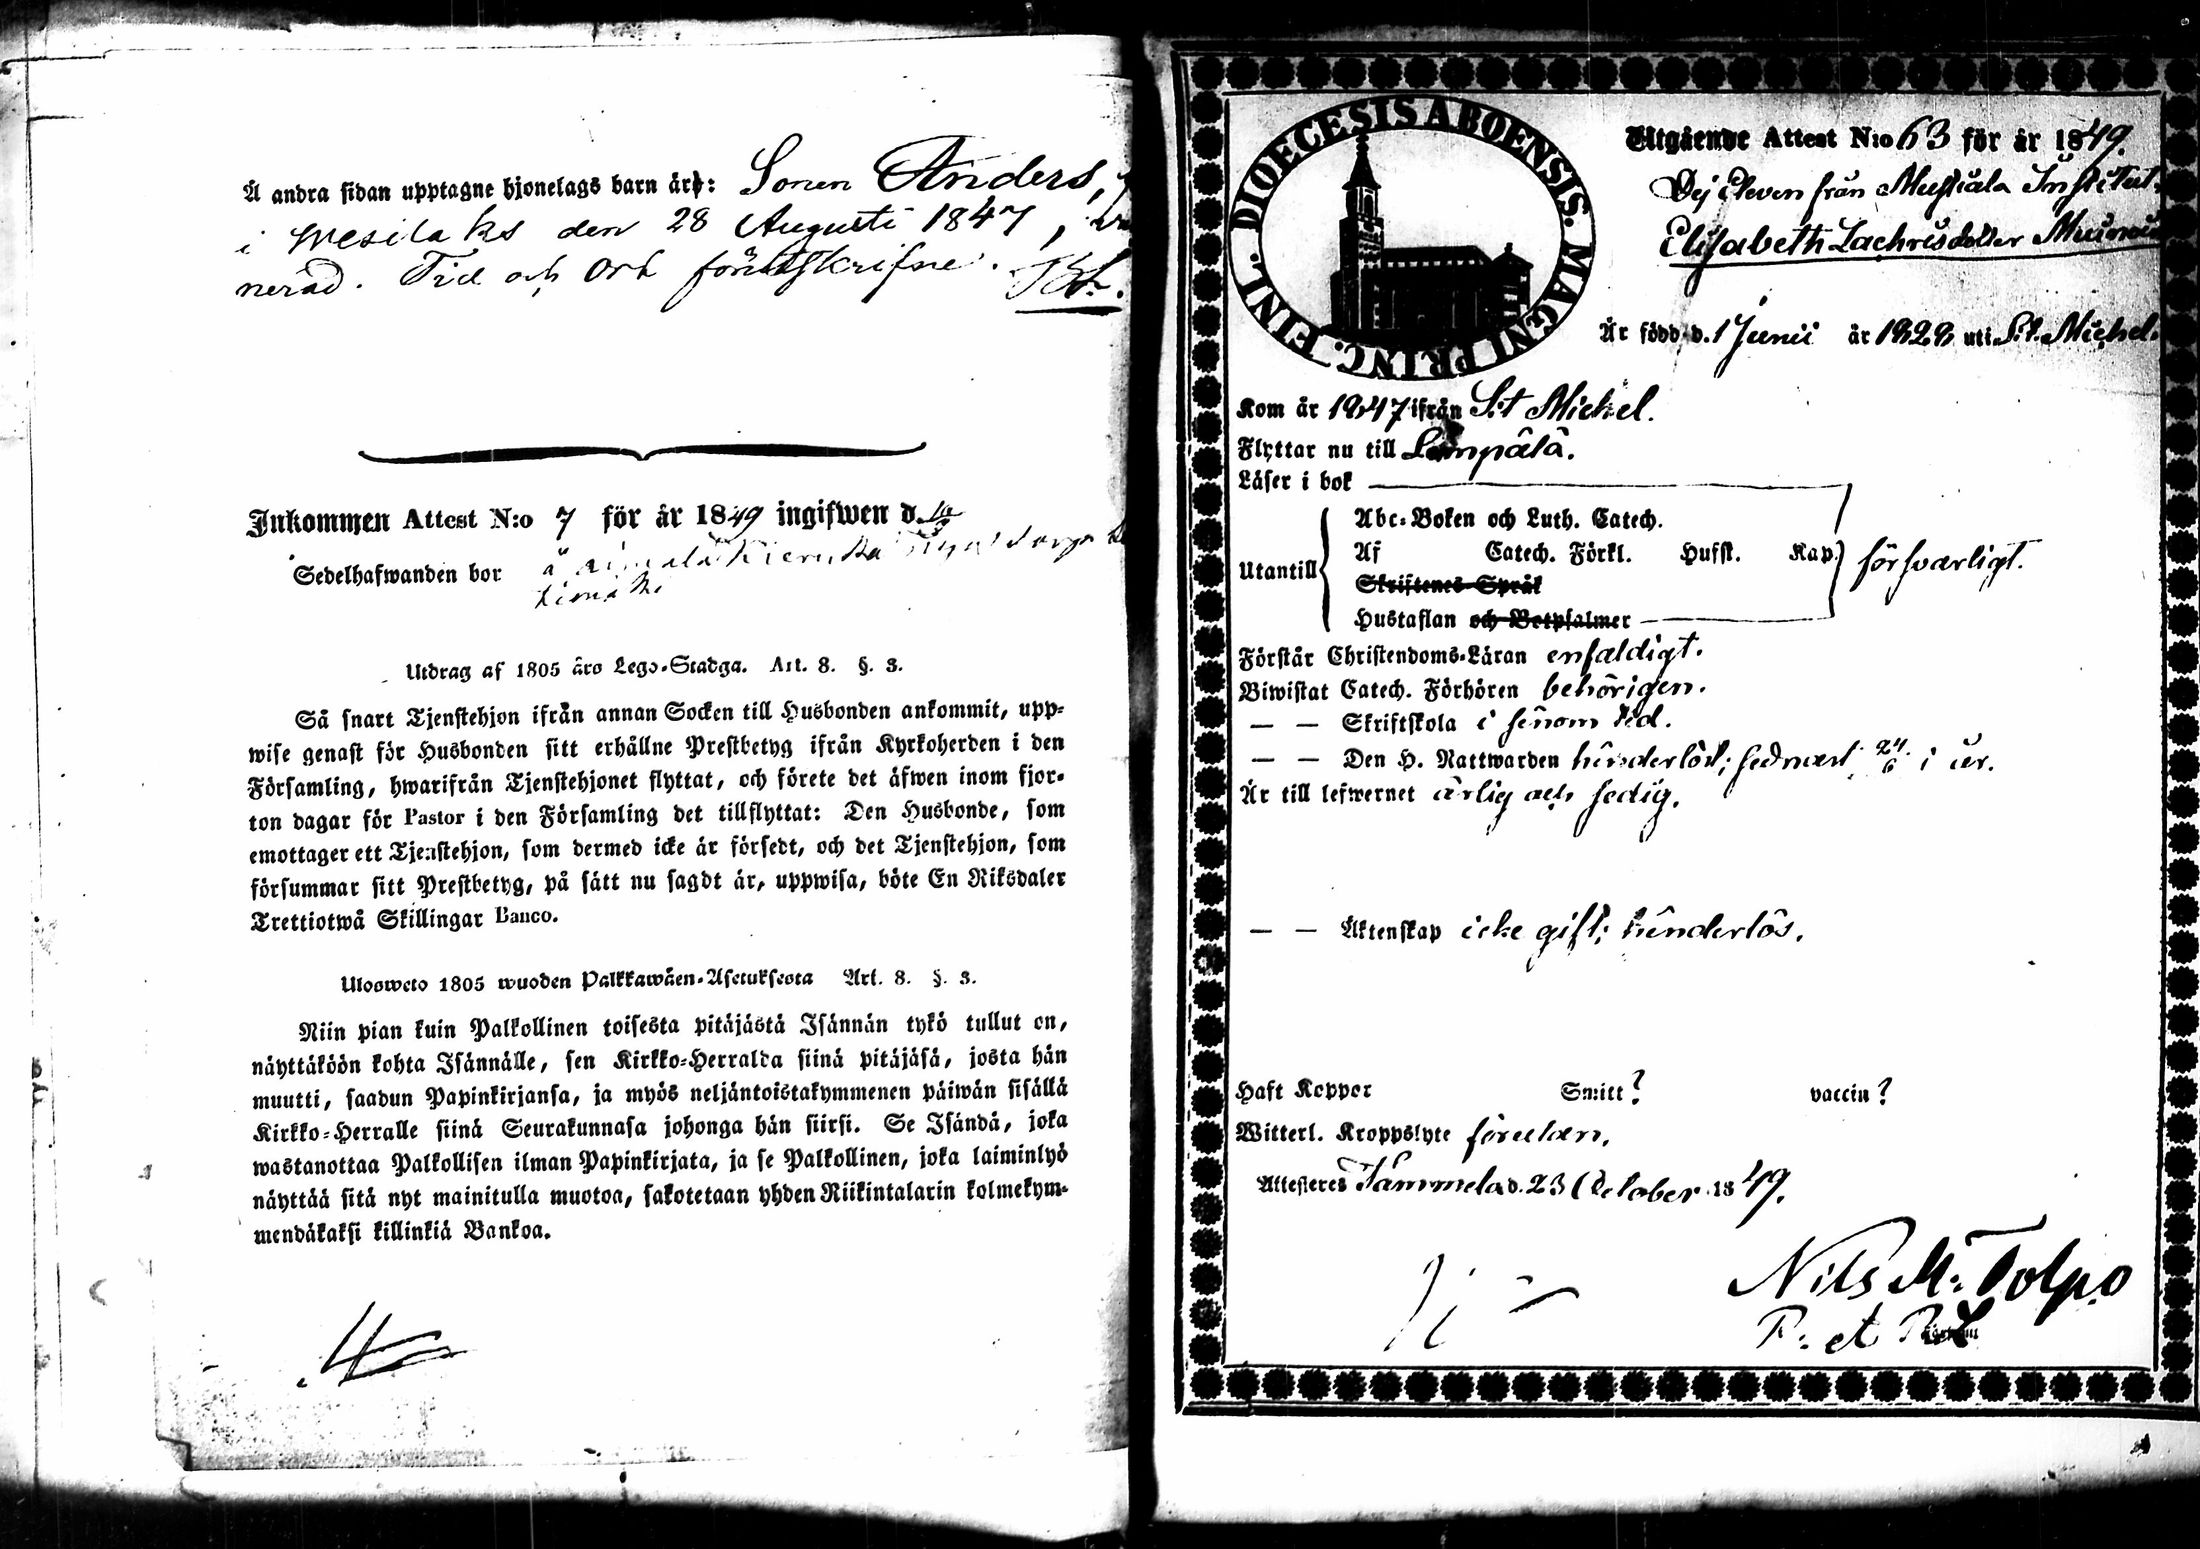 Å andra sidan upptagne hjonelags barn är: Sonen Anders,
i Wesilaks den 28 Augusti 1847,
nerad. Tid och Ort förutskrifne.
Inkommen Attest N:o 7 för år 1849 ingifwen d.
Sedelhafwanden bor å
Utdrag af 1805 års Lego-Stadga. Art. 8. §. 3.
Så snart Tjenstehjon ifrån annan Socken till Husbonden ankommit, upp-
wise genast för Husbonden sitt erhållne Prestbetyg ifrån Kyrkoherden i den
Församling, hwarifrån Tjenstehjonet flyttat, och förete det äfwen inom fjor-
ton dagar för Pastor i den Församling det tillflyttat: Den Husbonde, som
emottager ett Tjenstehjon, som dermed icke är försedt, och det Tjenstehjon, som
försummar sitt Prestbetyg, på sätt nu sagdt är, uppwisa, böte En Riksdaler
Trettiotwå Skillingar Banco.
Ulosweto 1805 wuoden Palkkawäen-Asetuksesta Art. 8. §. 3.
Niin pian kuin Palkollinen toisesta pitäjästä Isännän tykö tullut on,
näyttäköön kohta Isännälle, sen Kirkko-Herralda siinä pitäjäsä, josta hän
muutti, saadun Papinkirjansa, ja myös neljäntoistakymmenen päiwän sisällä
Kirkko-Herralle siinä Seurakunnasa johonga hän siirsi. Se Isändä, joka
wastanottaa Palkollisen ilman Papinkirjata, ja se Palkollinen, joka laiminlyö
näyttää sitä nyt mainitulla muotoa, sakotetaan yhden Riikintalarin kolmekym-
mendäkaksi killinkiä Bankoa.
DIOECESIS ABOENSIS. MAGNI PRINC. FINL.
Utgående Attest N:o 63 för år 1849.
Eleven från Mustiala Institut.
Elisabeth Zachrisdotter
Är född d. 1 Junii år 1828 uti S:t Michel.
Kom år 1847 ifrån S:t Michel.
Flyttar nu till Lempälä.
Läser i bok
Abc-Boken och Luth. Catech.
Af Catech. Förkl. Husst. Kap.
Utantill försvarligt.
Skriftenes Språk
Hustaflan och Botpsalmer
Förstår Christendoms-Läran enfaldigt.
Biwistat Catech. Förhören behörigen.
— — Skriftskola i sinom tid.
— — Den H. Nattwarden hinderlöst; sednast 24/6 i år.
Är till lefwernet ärlig och sedig.
— — Äktenskap icke gift; hinderlös.
Haft Koppor Smitt? vaccin?
Witterl. Kroppslyte förutan.
Attesteres Tammela d. 23 October 1849.
Nils M. Tolpo
P. et P. L.